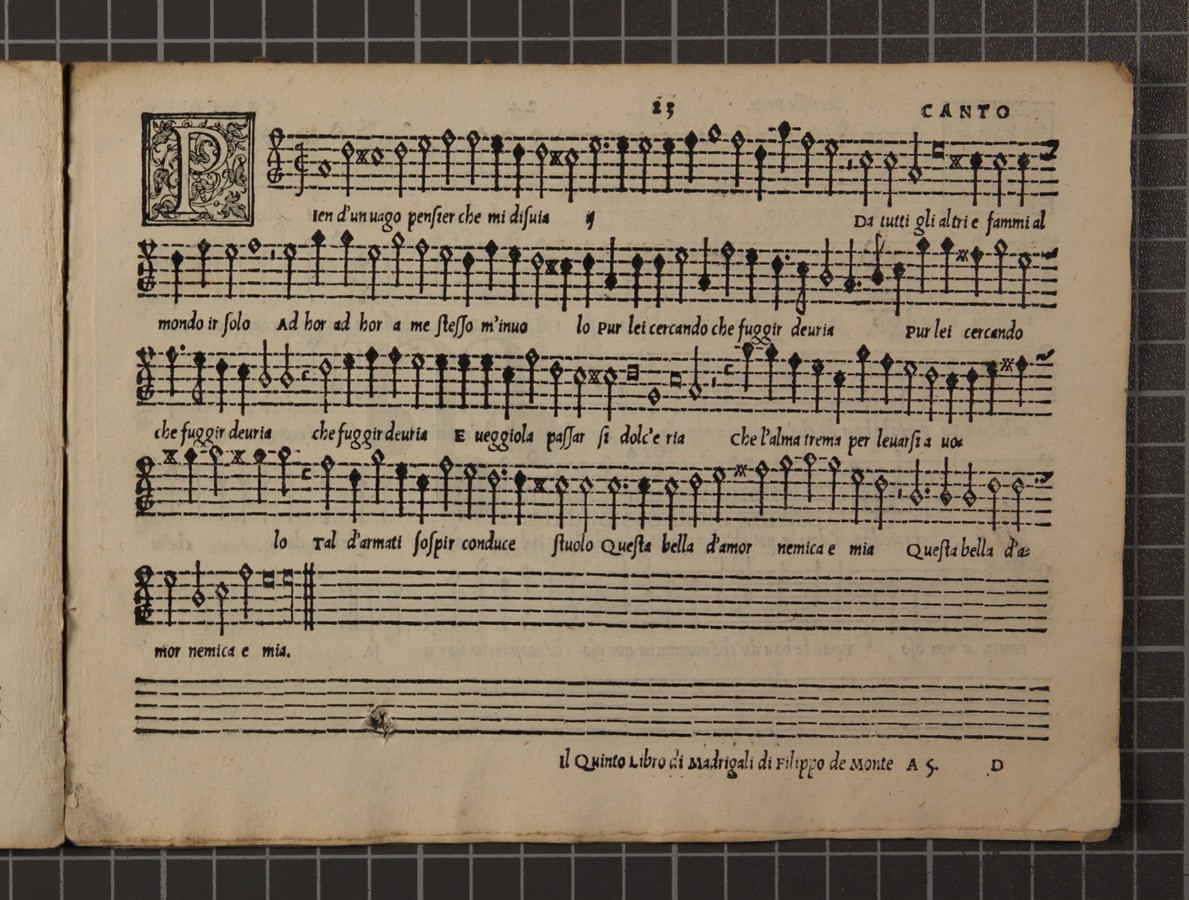 25 CANTO
PIen d'un uago pensier che mi disuia ij Da tutti gli altri e fammi al
mondo ir solo Ad hor ad hor a me stesso m'inuo lo Pur lei cercando che fuggir deuria Pur lei cercando
che fuggir deuria che fuggir deuria E ueggiola passar si dolc'e ria Che l'alma trema per leuarsi a uo=
lo Tal d'armati sospir conduce stuolo Questa bella d'amor nemica e mia Questa bella d'a=
mor nemica e mia.
Il Quinto Libro di Madrigali di Filippo de Monte A 5. D